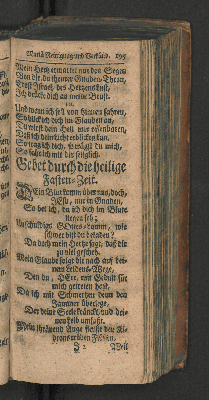 Mariä Reinigung und Verkünd. 195
Mein Herz erwartet nur den Segen
Von dir, du theurer Gnaden-Thron,
Trost Israel, des Herzens Lust,
Ich drücke dich an meine Brust.
Und wann ich soll von hinnen fahren,
So blick ich dich im Glauben an,
Du wirst dein Heil mir offenbaren,
Daß ich dein Licht erblicken kan,
So trag ich dich, so trägst du mich,
So fahr ich mit dir seliglich.
Gebet durch die heilige
Fasten-Zeit.
Dein Blut komm über uns, doch,
JEsu, nur in Gnaden,
So bet ich, da ich dich im Blute
liegen seh;
Unschuldigs GOttes-Lamm, wie
schwer bist du beladen?
Da doch mein Hertze sagt, daß dir
zu viel gescheh.
Mein Glaube folgt dir nach auf dei-
nem Leidens-Wege,
Den du, HErr, mit Gedult für
mich getreten hast,
Da ich mit Schmertzen denn den
Jammer überlege,
Der deine Seele kränckt, und dei-
nen Leib umfaßt.
Mein thränend Auge fließt den Ki-
drons trüben Flüssen,
J 2 Weil